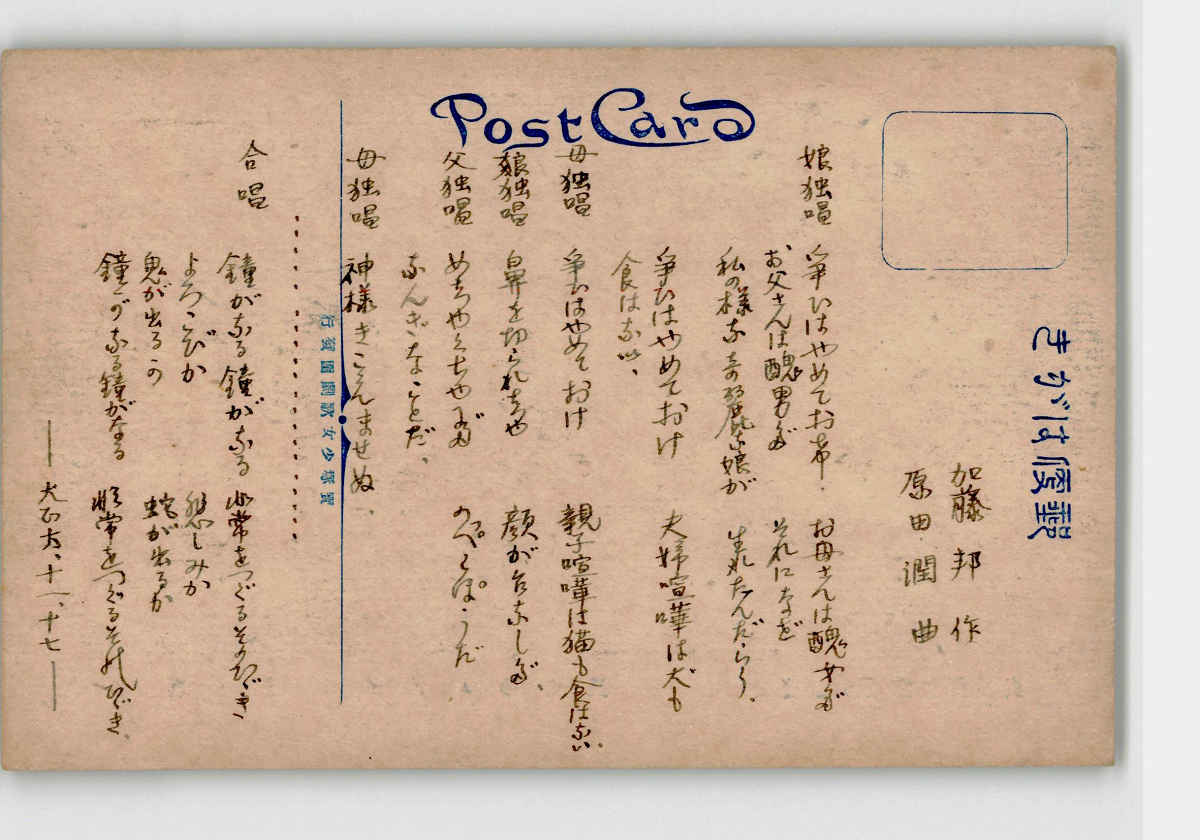 Post Card
きがは便郵
加藤 邦 作
原田 潤 曲
娘独唱 争ひはやめてお呉 お母さんは醜女だ
お父さんは醜男だ それになぜ
私の様な奇麗な娘が 生れたんだらう、
争ひはやめておけ 夫婦喧嘩は犬も
食はない、
母独唱 争ひはやめておけ 親子喧嘩は猫も食はない、
娘独唱 鼻を切られちや 顔が台なしだ、
父独唱 めちやくちやだ のつぺらぽうだ
なんぎなことだ、
母独唱 神様きこえませぬ、
行発団劇歌女少塚宝
合唱 鐘がなる鐘がなる 非常をつぐるそのひびき
よろこびか 悲しみか
鬼が出るか 蛇が出るか
鐘がなる鐘がなる 非常をつぐるそのひびき、
— 大正六、十一、十七 —